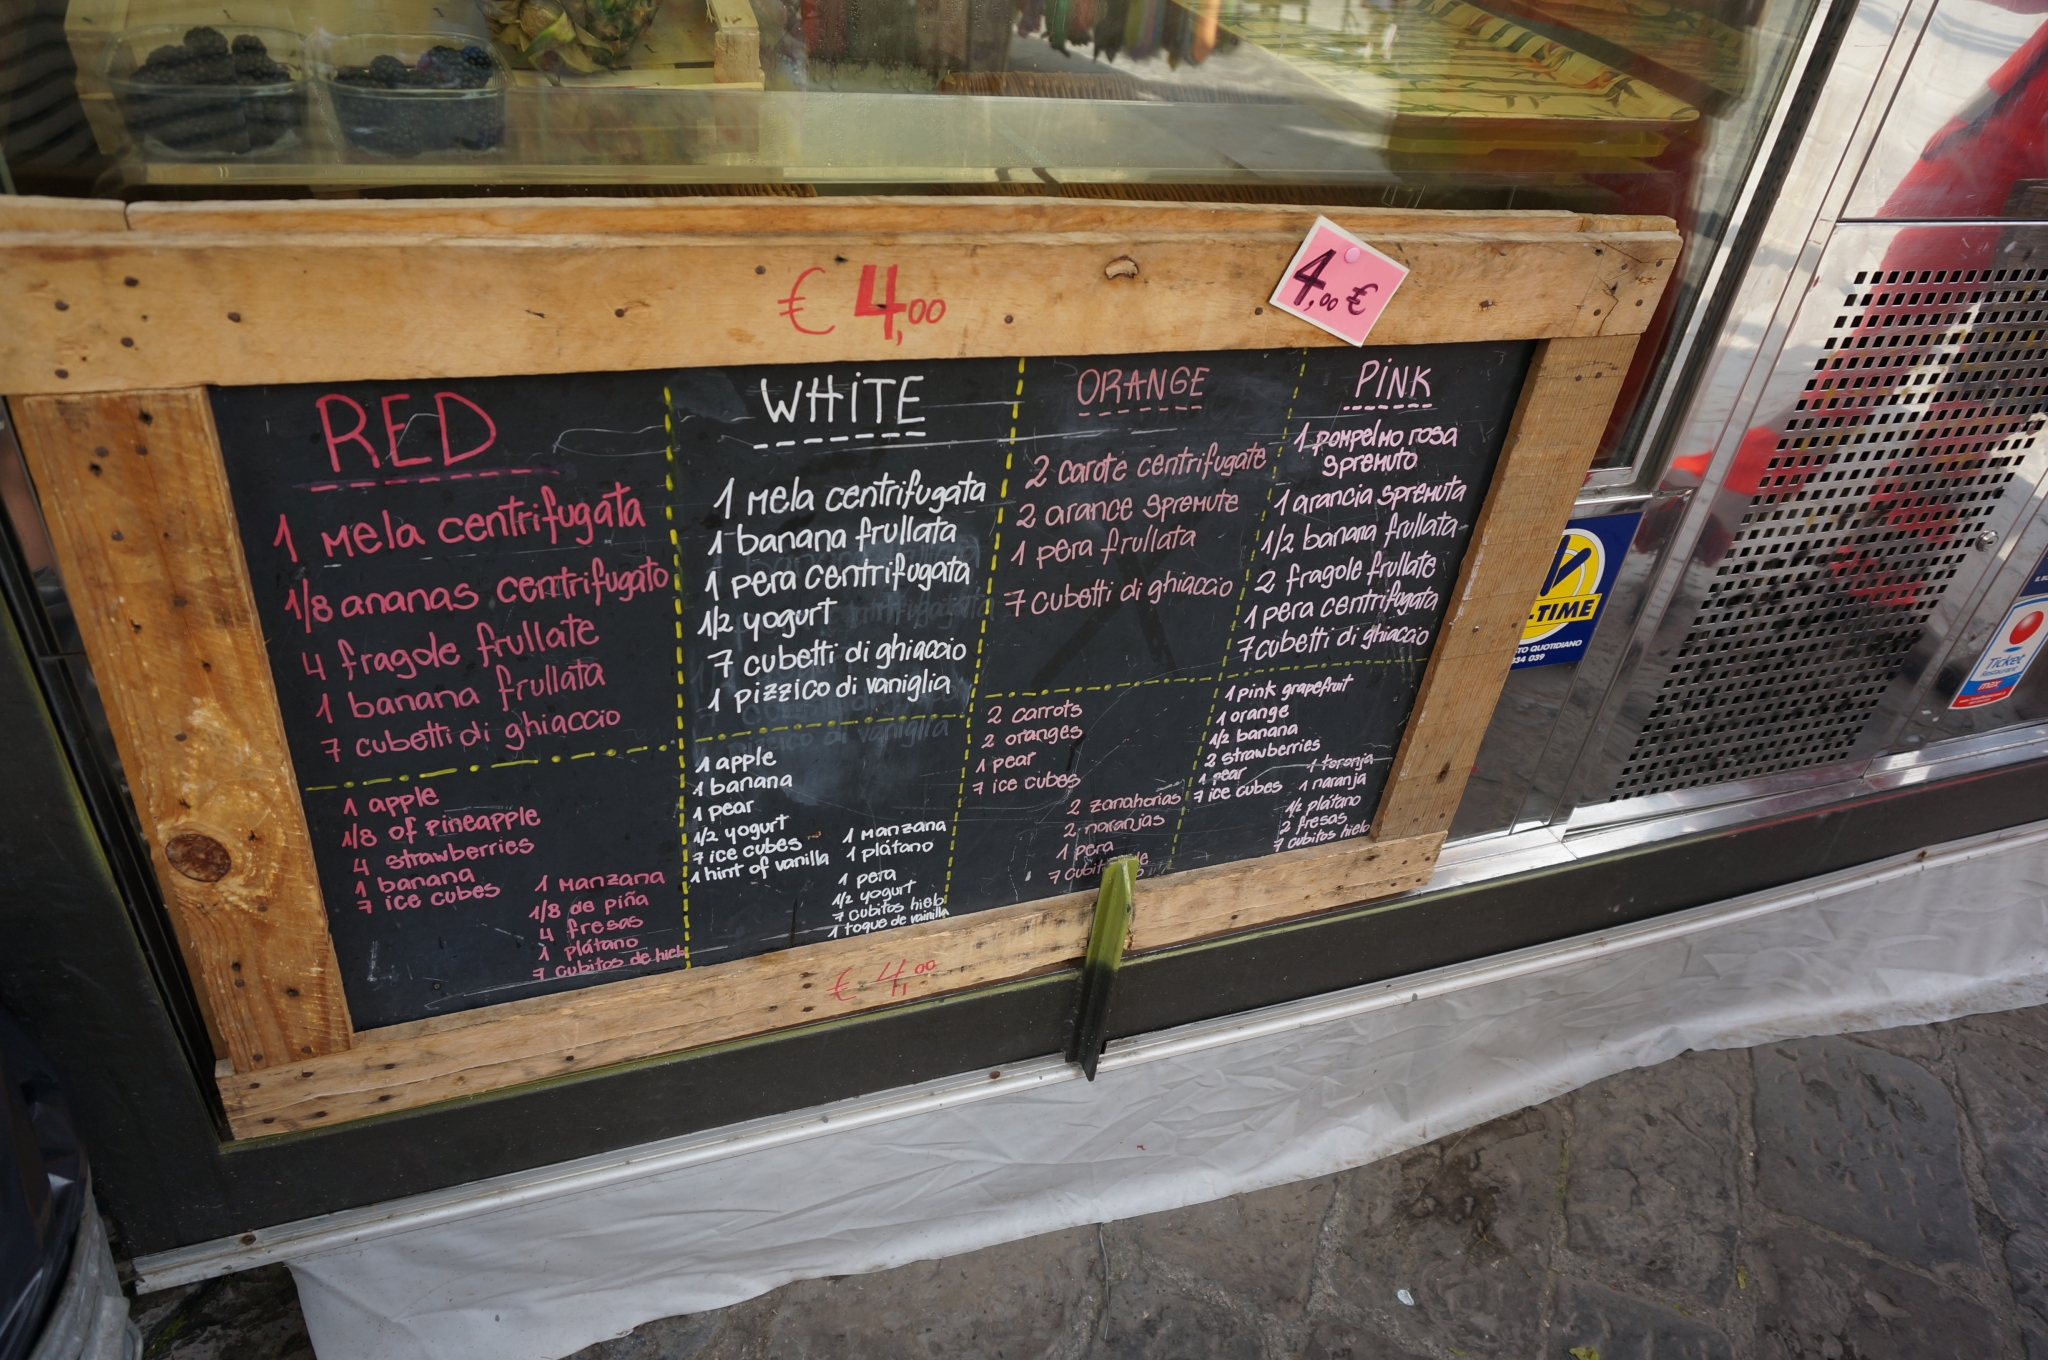 € 4,00
4,00 €
RED
1 mela centrifugata
1/8 ananas centrifugato
4 fragole frullate
1 banana frullata
7 cubetti di ghiaccio
1 apple
1/8 of pineapple
4 strawberries
1 banana
7 ice cubes
1 manzana
1/8 de piña
4 fresas
1 plátano
7 cubitos de hielo
WHITE
1 mela centrifugata
1 banana frullata
1 pera centrifugata
1/2 yogurt
7 cubetti di ghiaccio
1 pizzico di vaniglia
1 apple
1 banana
1 pear
1/2 yogurt
7 ice cubes
1 hint of vanilla
1 manzana
1 plátano
1 pera
1/2 yogurt
7 cubitos hielo
1 toque de vainilla
ORANGE
2 carote centrifugate
2 arance spremute
1 pera frullata
7 cubetti di ghiaccio
2 carrots
2 oranges
1 pear
7 ice cubes
2 zanahorias
2 naranjas
1 pera
7
PINK
1 pompelmo rosa
spremuto
1 arancia spremuta
1/2 banana frullata
2 fragole frullate
1 pera centrifugata
7 cubetti di ghiaccio
1 pink grapefruit
1 orange
1/2 banana
2 strawberries
1 pear
7 ice cubes
1 toronja
1 naranja
1/2 plátano
2 fresas
7 cubitos hielo
€ 4,00
-TIME
STO QUOTIDIANO
34 039
Ticket
Restaurant
max